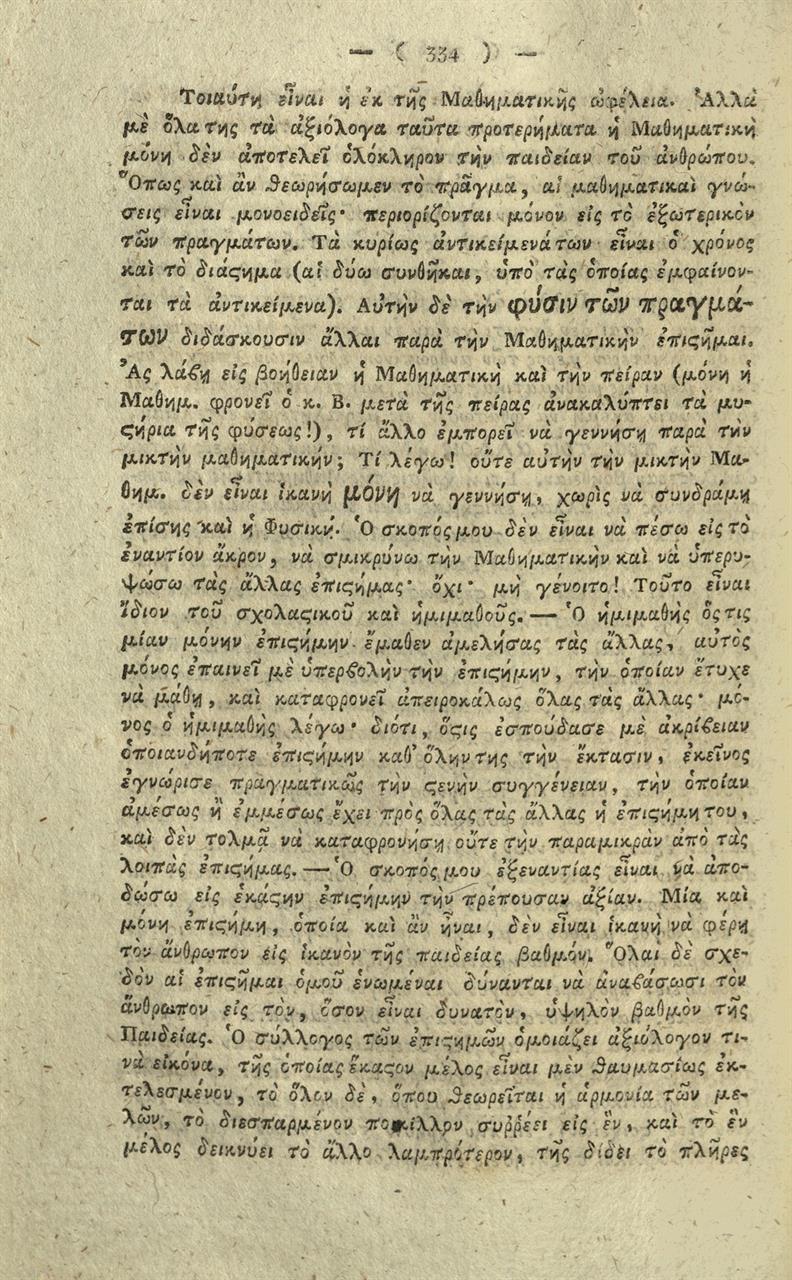 — ( 334 ) —
Τοιαύτη εἶναι ἡ ἐκ τῆς Μαθηματικῆς ὠφέλεια. Ἀλλὰ
μὲ ὅλα της τὰ ἀξιόλογα ταῦτα προτερήματα ἡ Μαθηματικὴ
μόνη δὲν ἀποτελεῖ ὁλόκληρον τὴν παιδείαν τοῦ ἀνθρώπου.
Ὅπως καὶ ἂν θεωρήσωμεν τὸ πρᾶγμα, αἱ μαθηματικαὶ γνώ-
σεις εἶναι μονοειδεῖς· περιορίζονται μόνον εἰς τὸ ἐξωτερικὸν
τῶν πραγμάτων. Τὰ κυρίως ἀντικείμενά των εἶναι ὁ χρόνος
καὶ τὸ διάϛημα (αἱ δύω συνθῆκαι, ὑπὸ τὰς ὁποίας ἐμφαίνον-
ται τὰ ἀντικείμενα). Αὐτὴν δὲ τὴν φύσιν τῶν πραγμά-
των διδάσκουσιν ἄλλαι παρὰ τὴν Μαθηματικὴν ἐπιϛῆμαι.
Ἂς λάβῃ εἰς βοήθειαν ἡ Μαθηματικὴ καὶ τὴν πεῖραν (μόνη ἡ
Μαθημ. φρονεῖ ὁ κ. Β. μετὰ τῆς πείρας ἀνακαλύπτει τὰ μυ-
ϛήρια τῆς φύσεως!), τί ἄλλο ἐμπορεῖ νὰ γεννήσῃ παρὰ τὴν
μικτὴν μαθηματικήν; Τί λέγω! οὔτε αὐτὴν τὴν μικτὴν Μα-
θημ. δὲν εἶναι ἱκανὴ μόνη νὰ γεννήσῃ, χωρὶς νὰ συνδράμῃ
ἐπίσης καὶ ἡ Φυσική. Ὁ σκοπός μου δὲν εἶναι νὰ πέσω εἰς τὸ
ἐναντίον ἄκρον, νὰ σμικρύνω τὴν Μαθηματικὴν καὶ νὰ ὑπερυ-
ψώσω τὰς ἄλλας ἐπιϛήμας· ὄχι· μὴ γένοιτο! Τοῦτο εἶναι
ἴδιον τοῦ σχολαϛικοῦ καὶ ἡμιμαθοῦς. — Ὁ ἡμιμαθὴς ὅς τις
μίαν μόνην ἐπιϛήμην ἔμαθεν ἀμελήσας τὰς ἄλλας, αὐτὸς
μόνος ἐπαινεῖ μὲ ὑπερβολὴν τὴν ἐπιϛήμην, τὴν ὁποίαν ἔτυχε
νὰ μάθῃ, καὶ καταφρονεῖ ἀπειροκάλως ὅλας τὰς ἄλλας· μό-
νος ὁ ἡμιμαθὴς λέγω· διότι, ὅϛις ἐσπούδασε μὲ ἀκρίβειαν
ὁποιανδήποτε ἐπιϛήμην καθ' ὅλην της τὴν ἔκτασιν, ἐκεῖνος
ἐγνώρισε πραγματικῶς τὴν ϛενὴν συγγένειαν, τὴν ὁποίαν
ἀμέσως ἢ ἐμμέσως ἔχει πρὸς ὅλας τὰς ἄλλας ἡ ἐπιϛήμη του,
καὶ δὲν τολμᾷ νὰ καταφρονήσῃ οὔτε τὴν παραμικρὰν ἀπὸ τὰς
λοιπὰς ἐπιϛήμας. — Ὁ σκοπός μου ἐξεναντίας εἶναι νὰ ἀπο-
δώσω εἰς ἑκάϛην ἐπιϛήμην τὴν πρέπουσαν ἀξίαν. Μία καὶ
μόνη ἐπιϛήμη, ὁποία καὶ ἂν ἦναι, δὲν εἶναι ἱκανὴ νὰ φέρῃ
τὸν ἄνθρωπον εἰς ἱκανὸν τῆς παιδείας βαθμόν. Ὅλαι δὲ σχε-
δὸν αἱ ἐπιϛῆμαι ὁμοῦ ἑνωμέναι δύνανται νὰ ἀναβάσωσι τὸν
ἄνθρωπον εἰς τὸν, ὅσον εἶναι δυνατὸν, ὑψηλὸν βαθμὸν τῆς
Παιδείας. Ὁ σύλλογος τῶν ἐπιϛημῶν ὁμοιάζει ἀξιόλογον τι-
νὰ εἰκόνα, τῆς ὁποίας ἕκαϛον μέλος εἶναι μὲν θαυμασίως ἐκ-
τελεσμένον, τὸ ὅλον δὲ, ὅπου θεωρεῖται ἡ ἁρμονία τῶν με-
λῶν, τὸ διεσπαρμένον ποικίλλον συῤῥέει εἰς ἓν, καὶ τὸ ἓν
μέλος δεικνύει τὸ ἄλλο λαμπρότερον, τῆς δίδει τὸ πλῆρες